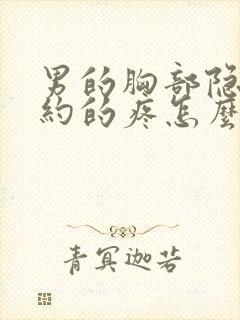 男的胸部隐
約的疼怎麼
青冥迦若